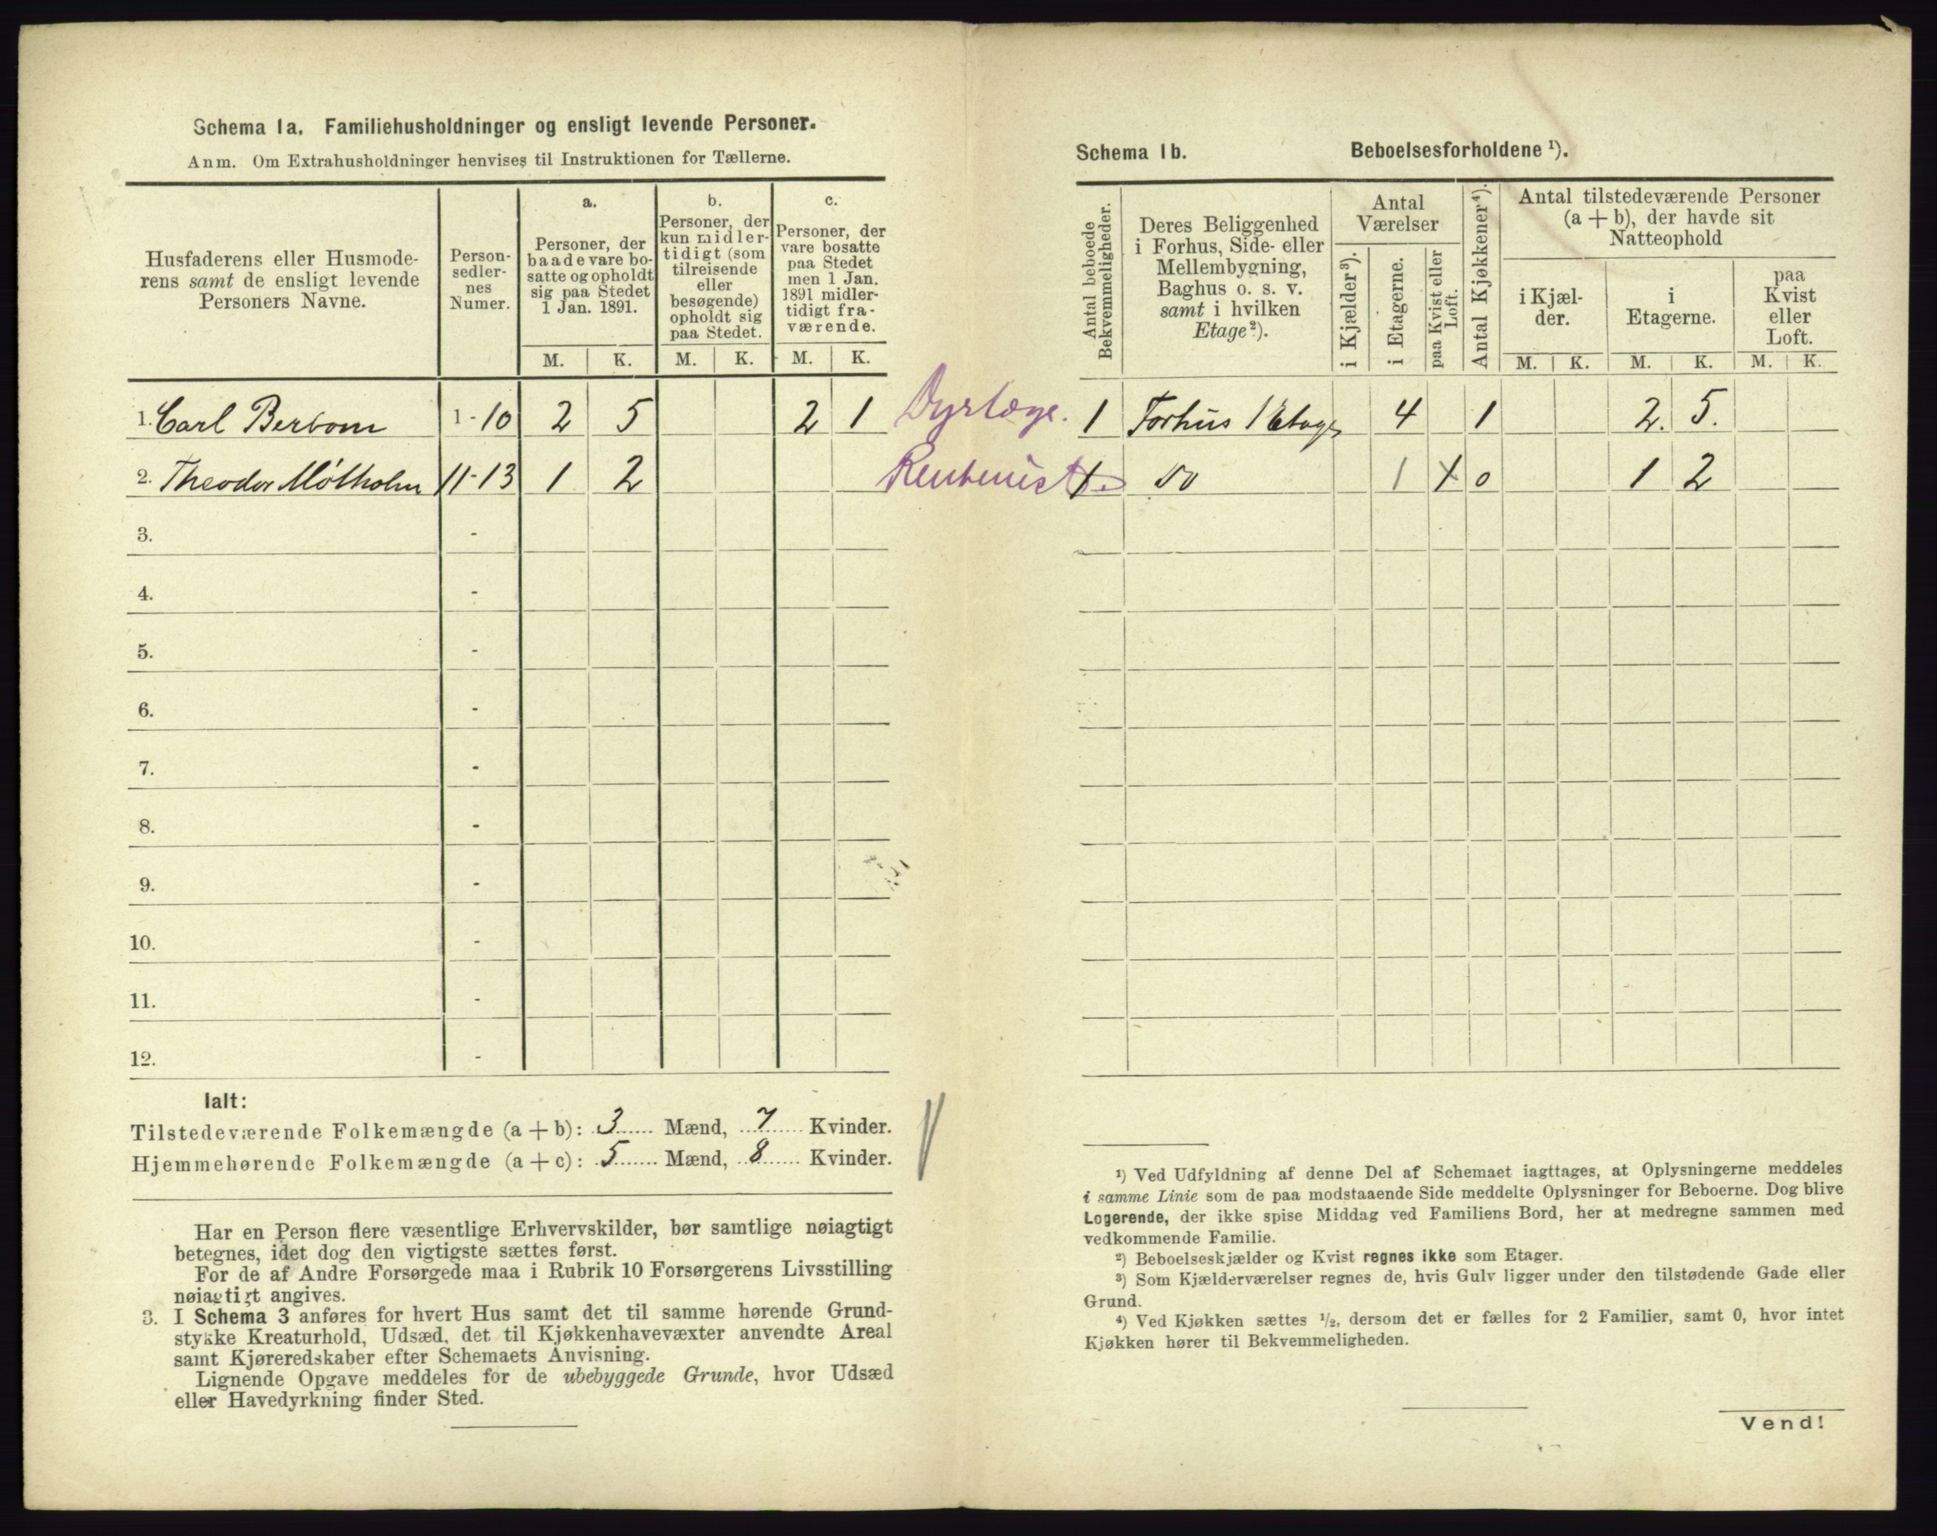 Schema 1a. Familiehusholdninger og ensligt levende Personer.
Anm. Om Extrahusholdninger henvises til Instruktionen for Tællerne.
Husfaderens eller Husmode-
rens samt de ensligt levende
Personers Navne.
Person-
sedler-
nes
Numer.
a.
Personer, der
baade vare bo-
satte og opholdt
sig paa Stedet
1 Jan. 1891.
b.
Personer, der
kun midler-
tidigt (som
tilreisende
eller
besøgende)
opholdt sig
paa Stedet.
c.
Personer, der
vare bosatte
paa Stedet
men 1 Jan.
1891 midler-
tidigt fra-
værende.
M. K. M. K. M. K.
1. Carl Berbom 1-10 2 5 2 1 Dyrlæge.
2. Theodor Møtholm 11-13 1 2 Rentenist.
3. -
4. -
5. -
6. -
7. -
8. -
9. -
10. -
11. -
12. -
Ialt:
Tilstedeværende Folkemængde (a + b): 3 Mænd, 7 Kvinder.
Hjemmehørende Folkemængde (a + c): 5 Mænd, 8 Kvinder.
Har en Person flere væsentlige Erhvervskilder, bør samtlige nøiagtigt
betegnes, idet dog den vigtigste sættes først.
For de af Andre Forsørgede maa i Rubrik 10 Forsørgerens Livsstilling
nøiagtigt angives.
3. I Schema 3 anføres for hvert Hus samt det til samme hørende Grund-
stykke Kreaturhold, Udsæd, det til Kjøkkenhavevæxter anvendte Areal
samt Kjøreredskaber efter Schemaets Anvisning.
Lignende Opgave meddeles for de ubebyggede Grunde, hvor Udsæd
eller Havedyrkning finder Sted.
Schema 1b. Beboelsesforholdene ¹).
Antal beboede
Bekvemmeligheder.
Deres Beliggenhed
i Forhus, Side- eller
Mellembygning,
Baghus o. s. v.
samt i hvilken
Etage²).
Antal
Værelser
i Kjælder³).
i Etagerne.
paa Kvist eller
Loft.
Antal Kjøkkener⁴).
Antal tilstedeværende Personer
(a + b), der havde sit
Natteophold
i Kjæl-
der.
i
Etagerne.
paa
Kvist
eller
Loft.
M. K. M. K. M. K.
1 Forhus 1 Etage 4 1 2. 5.
1 do 1 0 1 2
¹) Ved Udfyldning af denne Del af Schemaet iagttages, at Oplysningerne meddeles
i samme Linie som de paa modstaaende Side meddelte Oplysninger for Beboerne. Dog blive
Logerende, der ikke spise Middag ved Familiens Bord, her at medregne sammen med
vedkommende Familie.
²) Beboelseskjælder og Kvist regnes ikke som Etager.
³) Som Kjælderværelser regnes de, hvis Gulv ligger under den tilstødende Gade eller
Grund.
⁴) Ved Kjøkken sættes ½, dersom det er fælles for 2 Familier, samt 0, hvor intet
Kjøkken hører til Bekvemmeligheden.
Vend!